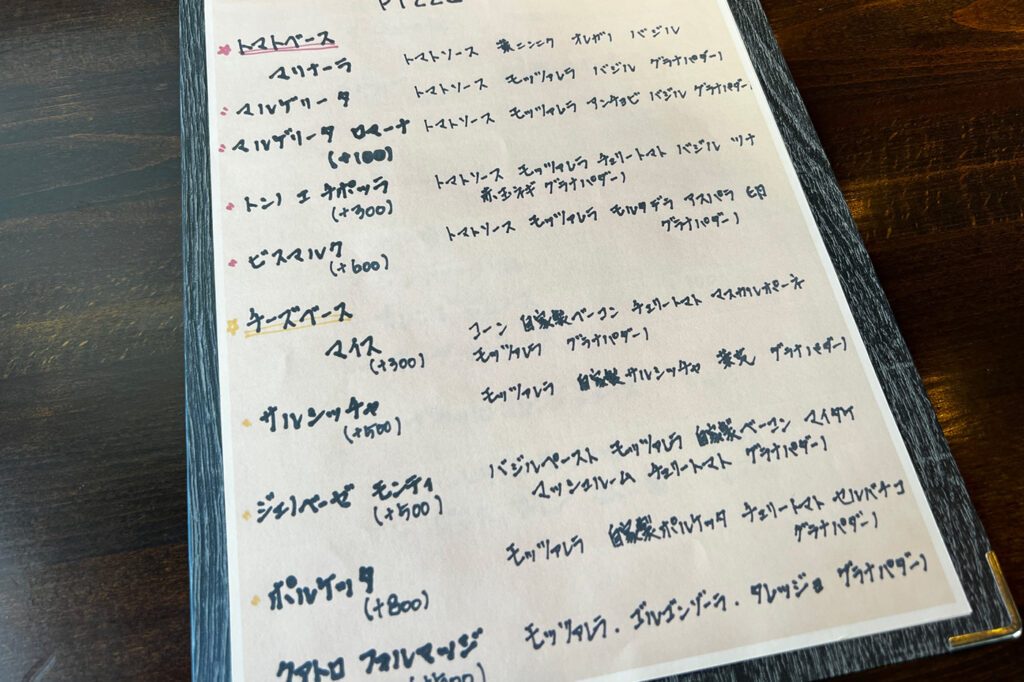 PIZZA
トマトベース
マリナーラ トマトソース 黒ニンニク オレガノ バジル
マルゲリータ トマトソース モッツァレラ バジル グラナパダーノ
マルゲリータ ロマーナ トマトソース モッツァレラ アンチョビ バジル グラナパダーノ
(+100)
トンノ エ チポッラ トマトソース モッツァレラ チェリートマト バジル ツナ
(+300) 赤玉ネギ グラナパダーノ
ビスマルク トマトソース モッツァレラ モルタデラ アスパラ 卵
(+600) グラナパダーノ
チーズベース
マイス コーン 自家製ベーコン チェリートマト マスカルポーネ
(+300) モッツァレラ グラナパダーノ
サルシッチャ モッツァレラ 自家製サルシッチャ グラナパダーノ
(+500)
ジェノベーゼ モンティ バジルペースト モッツァレラ 自家製ベーコン マイタケ
(+500) マッシュルーム チェリートマト グラナパダーノ
ポルケッタ モッツァレラ 自家製ポルケッタ チェリートマト セルバチコ
(+800) グラナパダーノ
クアトロ フォルマッジ モッツァレラ・ゴルゴンゾーラ・タレッジョ グラナパダーノ